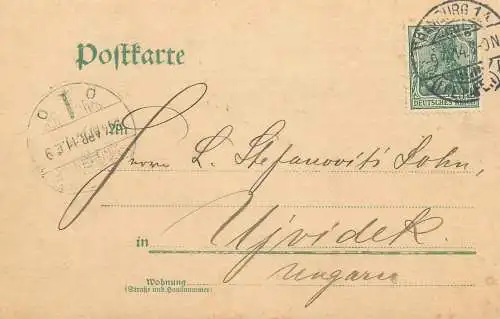 Postkarte
HAMBURG 14
DEUTSCHES REICH
An
Herrn L. Stefanovits Sohn,
in Ujvidek.
Ungarn
Wohnung
(Straße und Hausnummer)